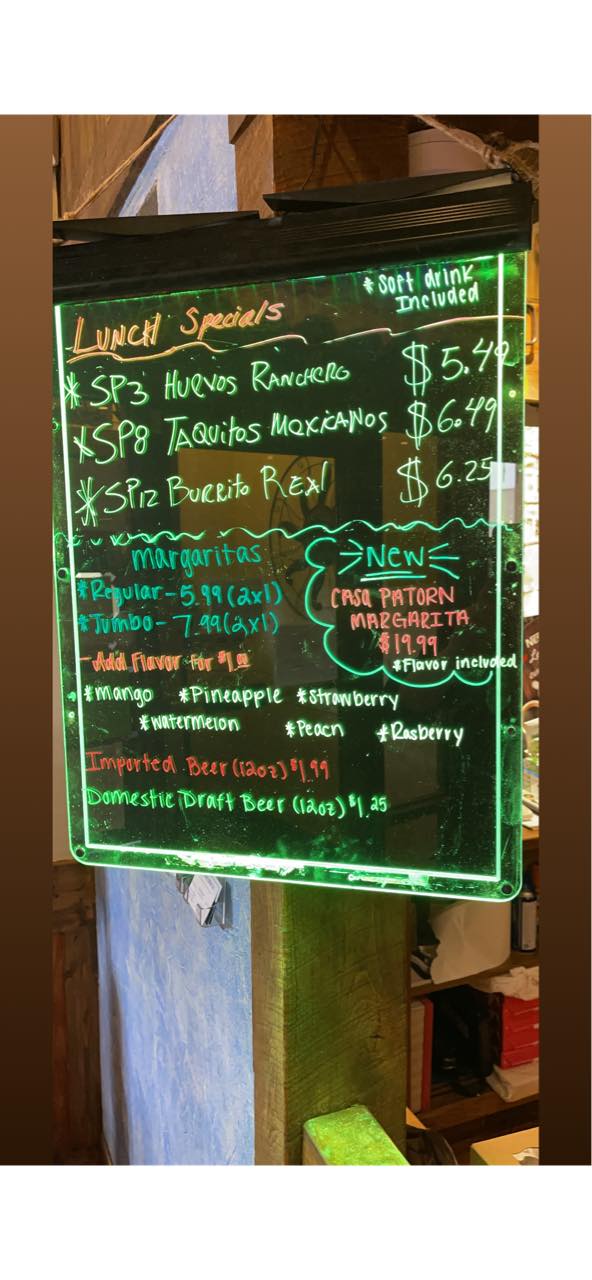 *Soft drink
Included
LUNCH Specials
* SP3 HUEVOS RANCHERO $5.49
*SP8 TAQUITOS MEXICANOS $6.49
*SP12 BURRITO REAL $6.25
margaritas
*Regular - 5.99 (2x1)
*Jumbo - 7.99 (2x1)
NEW
CASA PATORN
MARGARITA
$19.99
*Flavor included
-Add Flavor for $1.00
*Mango *Pineapple *Strawberry
*Watermelon *Peach *Rasberry
Imported Beer (12oz) $1.99
Domestic Draft Beer (12oz) $1.25